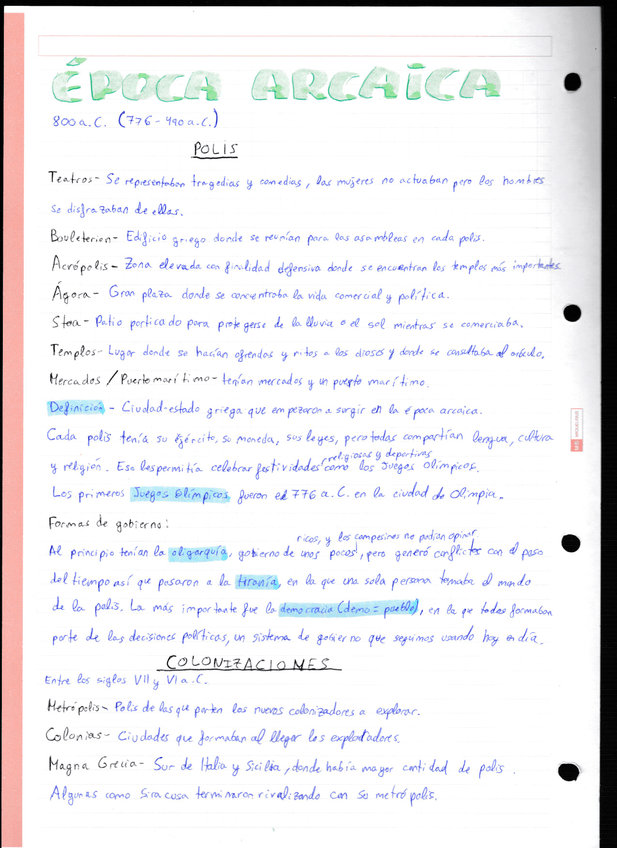 ÉPOCA ARCAICA
800 a.C. (776 - 490 a.C.)
POLIS
Teatros - Se representaban tragedias y comedias, las mujeres no actuaban pero los hombres
se disfrazaban de ellas.
Bouleterion - Edificio griego donde se reunían para las asambleas en cada polis.
Acrópolis - Zona elevada con finalidad defensiva donde se encuentran los templos más importantes
Ágora - Gran plaza donde se concentraba la vida comercial y política.
Stoa - Patio porticado para protegerse de la lluvia o el sol mientras se comerciaba.
Templos - Lugar donde se hacían ofrendas y ritos a los dioses y donde se consultaba al oráculo.
Mercados / Puerto marítimo - tenían mercados y un puerto marítimo.
Definición - Ciudad-estado griega que empezaron a surgir en la época arcaica.
Cada polis tenía su ejército, su moneda, sus leyes, pero todas compartían lengua, cultura
religiosas y deportivas
y religión. Eso les permitía celebrar festividades como los Juegos Olímpicos.
Los primeros Juegos Olímpicos fueron el 776 a.C. en la ciudad de Olimpia.
Formas de gobierno:
ricos, y los campesinos no podían opinar
Al principio tenían la oligarquía, gobierno de unos pocos, pero generó conflictos con el paso
del tiempo así que pasaron a la tiranía, en la que una sola persona tomaba el mando
de la polis. La más importante fue la democracia (demo = pueblo), en la que todos formaban
parte de las decisiones políticas, un sistema de gobierno que seguimos usando hoy en día.
COLONIZACIONES
Entre los siglos VII y VI a.C.
Metrópolis - Polis de las que parten los nuevos colonizadores a explorar.
Colonias - Ciudades que formaban al llegar los explotadores.
Magna Grecia - Sur de Italia y Sicilia, donde había mayor cantidad de polis.
Algunas como Siracusa terminaron rivalizando con su metrópolis.